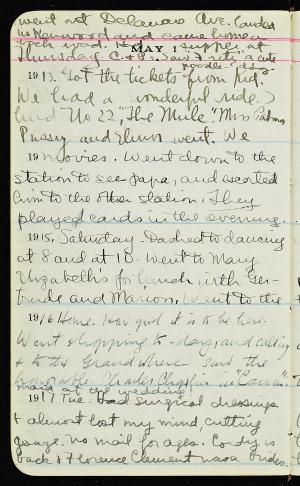 went out Delaware Ave. landed
in Kenwood and came home a
back road. Had supper at
MAY 1
Thursday
1913. Got the tickets from Kid.
We had a wonderful ride.
No 22, "The Mule" Miss
Pussy and Elinor went. We
19 movies. Went down to the
station to see papa, and escorted
him to the other station. They
played cards in the evening.
1915. Saturday. Dashed to dancing
at 8 and at 10. Went to Mary
Elizabeth's for lunch with Ger-
trude and Marion. Went to the
1916 Home. How good it is to be here.
Went shopping to-day, and calling
& to the Grand where saw the
honorable Charles Chaplin in "Carmen".
maid at the wedding
1917 Tue. Had surgical dressings
& almost lost my mind, cutting
gauze. No mail for ages. Cordy is
back & Florence Clement was a brides-